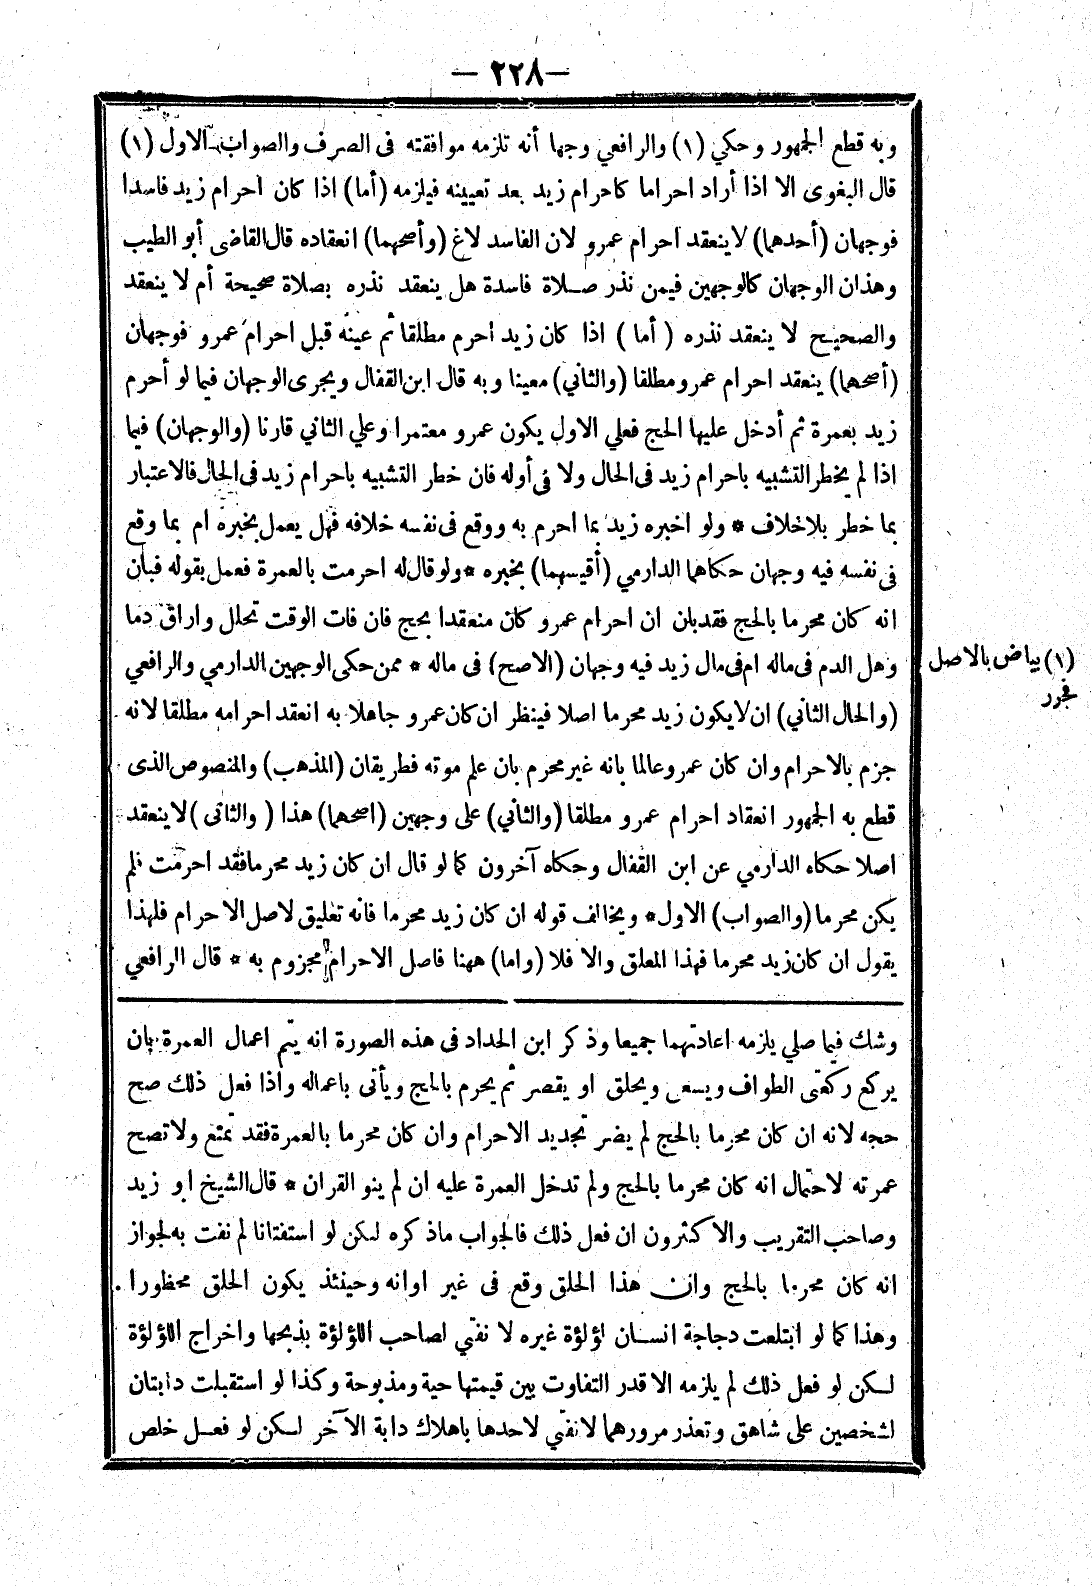 — ٢٢٨ —
وبه قطع الجمهور وحكي (١) والرافعي وجها أنه تلزمه موافقته فى الصرف والصواب الاول (١)
قال البغوى الا اذا أراد احراما كاحرام زيد بعد تعيينه فيلزمه (أما) اذا كان احرام زيد فاسدا
فوجهان (أحدهما) لا ينعقد احرام عمرو لان الفاسد لاغ (وأصحهما) انعقاده قال القاضى أبو الطيب
وهذان الوجهان كالوجهين فيمن نذر صلاة فاسدة هل ينعقد نذره بصلاة صحيحة أم لا ينعقد
والصحيح لا ينعقد نذره (أما) اذا كان زيد احرم مطلقا ثم عينه قبل احرام عمرو فوجهان
(أصحهما) ينعقد احرام عمرو مطلقا (والثاني) معينا وبه قال ابن القفال ويجرى الوجهان فيما لو أحرم
زيد بعمرة ثم أدخل عليها الحج فعلي الاول يكون عمرو معتمرا وعلي الثاني قارنا (والوجهان) فيما
اذا لم يخطر التشبيه باحرام زيد فى الحال ولا فى أوله فان خطر التشبيه باحرام زيد فى الحال فالاعتبار
بما خطر بلاخلاف * ولو اخبره زيد بما احرم به ووقع فى نفسه خلافه فهل يعمل بخبره ام بما وقع
فى نفسه فيه وجهان حكاهما الدارمي (أقيسهما) بخبره * ولو قال له احرمت بالعمرة فعمل بقوله فبان
انه كان محرما بالحج فقد بان ان احرام عمرو كان منعقدا بحج فان فات الوقت تحلل واراق دما
وهل الدم فى ماله ام فى مال زيد فيه وجهان (الاصح) فى ماله * ممن حكى الوجهين الدارمي والرافعي
(والحال الثاني) ان لا يكون زيد محرما اصلا فينظر ان كان عمرو جاهلا به انعقد احرامه مطلقا لانه
جزم بالاحرام وان كان عمرو عالما بانه غير محرم بان علم موته فطريقان (المذهب) والمنصوص الذى
قطع به الجمهور انعقاد احرام عمرو مطلقا (والثاني) على وجهين (اصحهما) هذا (والثانى) لا ينعقد
اصلا حكاه الدارمي عن ابن القفال وحكاه آخرون كما لو قال ان كان زيد محرما فقد احرمت فلم
يكن محرما (والصواب) الاول * ويخالف قوله ان كان زيد محرما فانه تعليق لاصل الاحرام فلهذا
يقول ان كان زيد محرما فهذا المعلق والا فلا (واما) ههنا فاصل الاحرام مجزوم به * قال الرافعي
(١) بياض بالاصل
فحرر
وشك فيما صلي يلزمه اعادتهما جميعا وذكر ابن الحداد فى هذه الصورة انه يتم اعمال العمرة بان
يركع ركعتى الطواف ويسعى ويحلق او يقصر ثم يحرم بالحج ويأتى باعماله واذا فعل ذلك صح
حجه لانه ان كان محرما بالحج لم يضر تجديد الاحرام وان كان محرما بالعمرة فقد تمتع ولا تصح
عمرته لاحتمال انه كان محرما بالحج ولم تدخل العمرة عليه ان لم ينو القران * قال الشيخ ابو زيد
وصاحب التقريب والاكثرون ان فعل ذلك فالجواب ماذكره لكن لو استفتانا لم نفت به لجواز
انه كان محرما بالحج وان هذا الحلق وقع فى غير اوانه وحينئذ يكون الحلق محظورا .
وهذا كما لو ابتلعت دجاجة انسان لؤلؤة غيره لا نفتي لصاحب اللؤلؤة بذبحها واخراج اللؤلؤة
لكن لو فعل ذلك لم يلزمه الا قدر التفاوت بين قيمتها حية ومذبوحة وكذا لو استقبلت دابتان
لشخصين على شاهق وتعذر مرورهما لا نفتي لاحدهما باهلاك دابة الآخر لكن لو فعل خلص